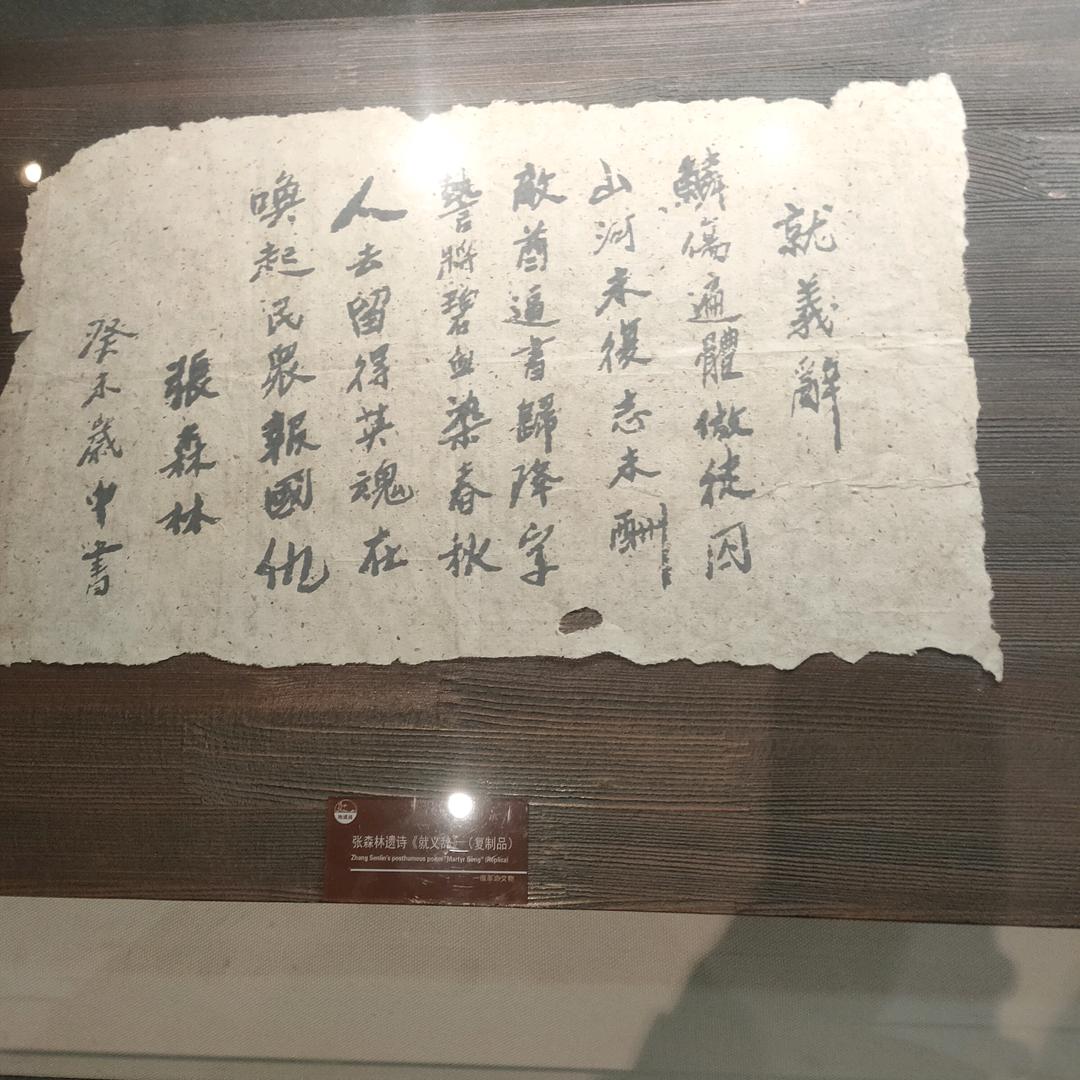 就義辭
鱗傷遍體做徒囚
山河未復志未酬
敵酋逼書歸降字
誓將碧血染春秋
人去留得英魂在
喚起民衆報國仇
張森林
癸未歲中書
张森林遗诗《就义辞》（复制品）
Zhang Senlin's posthumous poem "Martyr Song" (Replica)